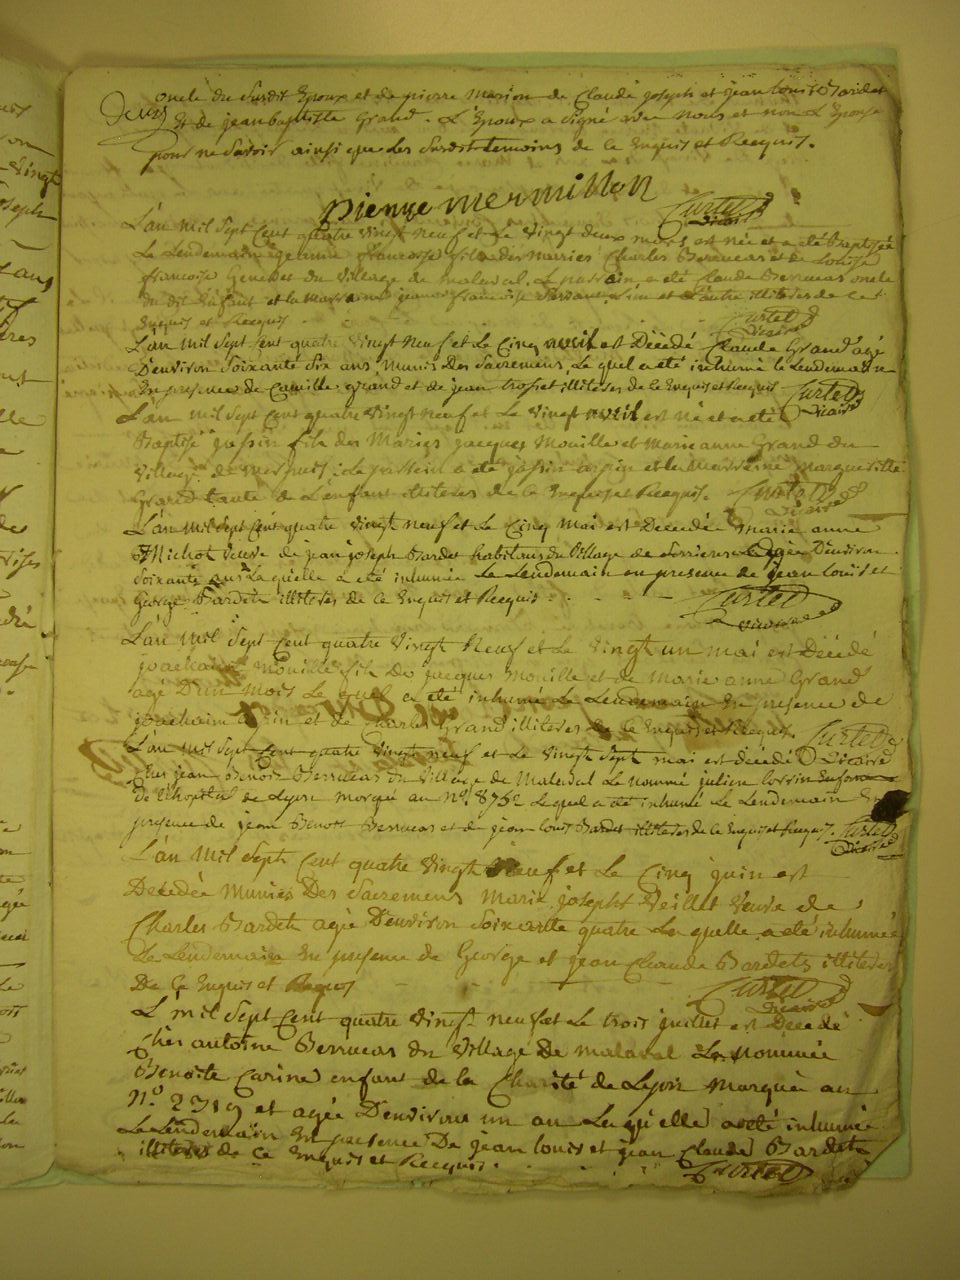 oncle du susdit Epoux et de pierre Marion de Claude joseph et jean louis Bardet
Et de jean baptiste Grand. L'Epoux a signé avec nous et non L'Epouse
pour ne savoir ainsi que les susdit temoins de ce Enquis et Recquis.
pierre mermillon
Curtet Vicaire
L'an mil sept cent quatre vingt neuf et le vingt deux mars est née et a été Baptisée
Le Lendemain jeanne francoise fille des mariés Charles Berrucas et de Louise
francoise Genevet du village de malaval. Le parrain a été Claude Berrucas oncle
du dit Enfant et la Marraine jeanne francoise et L'autre illiteres de ce
Enquis et Recquis. Curtet Vicaire
L'an mil sept cent quatre vingt neuf et Le Cinq avril est Décédé Claude Grand agé
D'environ Soixante Six ans, Munis Des Sacremens, Le quel a eté inhumé le Lendemain
En presence de Camille grand et de jean illiteres de Ce Enquis et Recquis Curtet Vicaire
L'an mil sept cent quatre vingt neuf et Le vingt avril est né et a été
Baptisé fils des Mariés jacques Mouille et Marie anne Grand du
village de Le parrein a été et la Marreine Margueritte
Grand tante de L'enfant illiteres de ce Enquis et Recquis. Curtet Vicaire
L'an mil sept cent quatre vingt neuf et Le Cinq mai est Décedée Marie anne
Michot veuve de jean joseph Bardet habitans du village de agée D'environ
Soixante ans La quelle a eté inhumée Le Lendemain en presence de jean louis et
George Bardets illiteres de Ce Enquis et Recquis. Curtet
Vicaire
L'an mil sept cent quatre vingt Neuf et Le vingt un mai est Décédé
joachim Mouille fils De jacques Mouille et de Marie anne Grand
agé D'un mois Le quel a eté inhumé Le Lendemain En presence de
joachim et de Charles Grand illiteres de Ce Enquis et Recquis. Curtet
L'an mil sept cent quatre vingt neuf et Le vingt sept mai est décédé Vicaire
Chés jean Benoit Berrucas du village de Malaval Le nommé julien
De L'hopital de Lyon marqué au n.º 8762 Lequel a eté inhumé Le Lendemain En
presence de jean Benoit Berrucas et de jean louis Bardet illiteres de ce Enquis et Recquis. Curtet
Vicaire
L'an Mil Sept Cent quatre vingt Neuf et Le Cinq juin est
Décédée Munies Des Sacremens Marie josephe Veillet veuve de
Charles Bardet agée D'environ Soixante quatre La quelle a eté inhumée
Le Lendemain En presence de George et jean Claude Bardets illiteres
De Ce Enquis et Recquis Curtet
Vicaire
L'mil Sept Cent quatre vingt neuf et Le trois juillet est Décédé
Chés antoine Berrucas du village De malaval La Nommée
Benoite Carine enfant de la Charité de Lyon Marquée au
N.º 2719 et agée D'environ un an La qu'elle a eté inhumée
Le Lendemain En presence De jean louis et jean Claude Bardets
illiteres de Ce Enquis et Recquis. Curtet